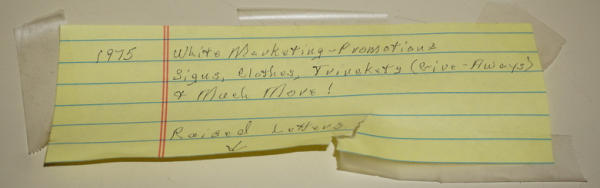 1975 White Marketing-Promotions
Signs, Clothes, Trinkets (Give-Aways)
& Much More!
Raised Letters